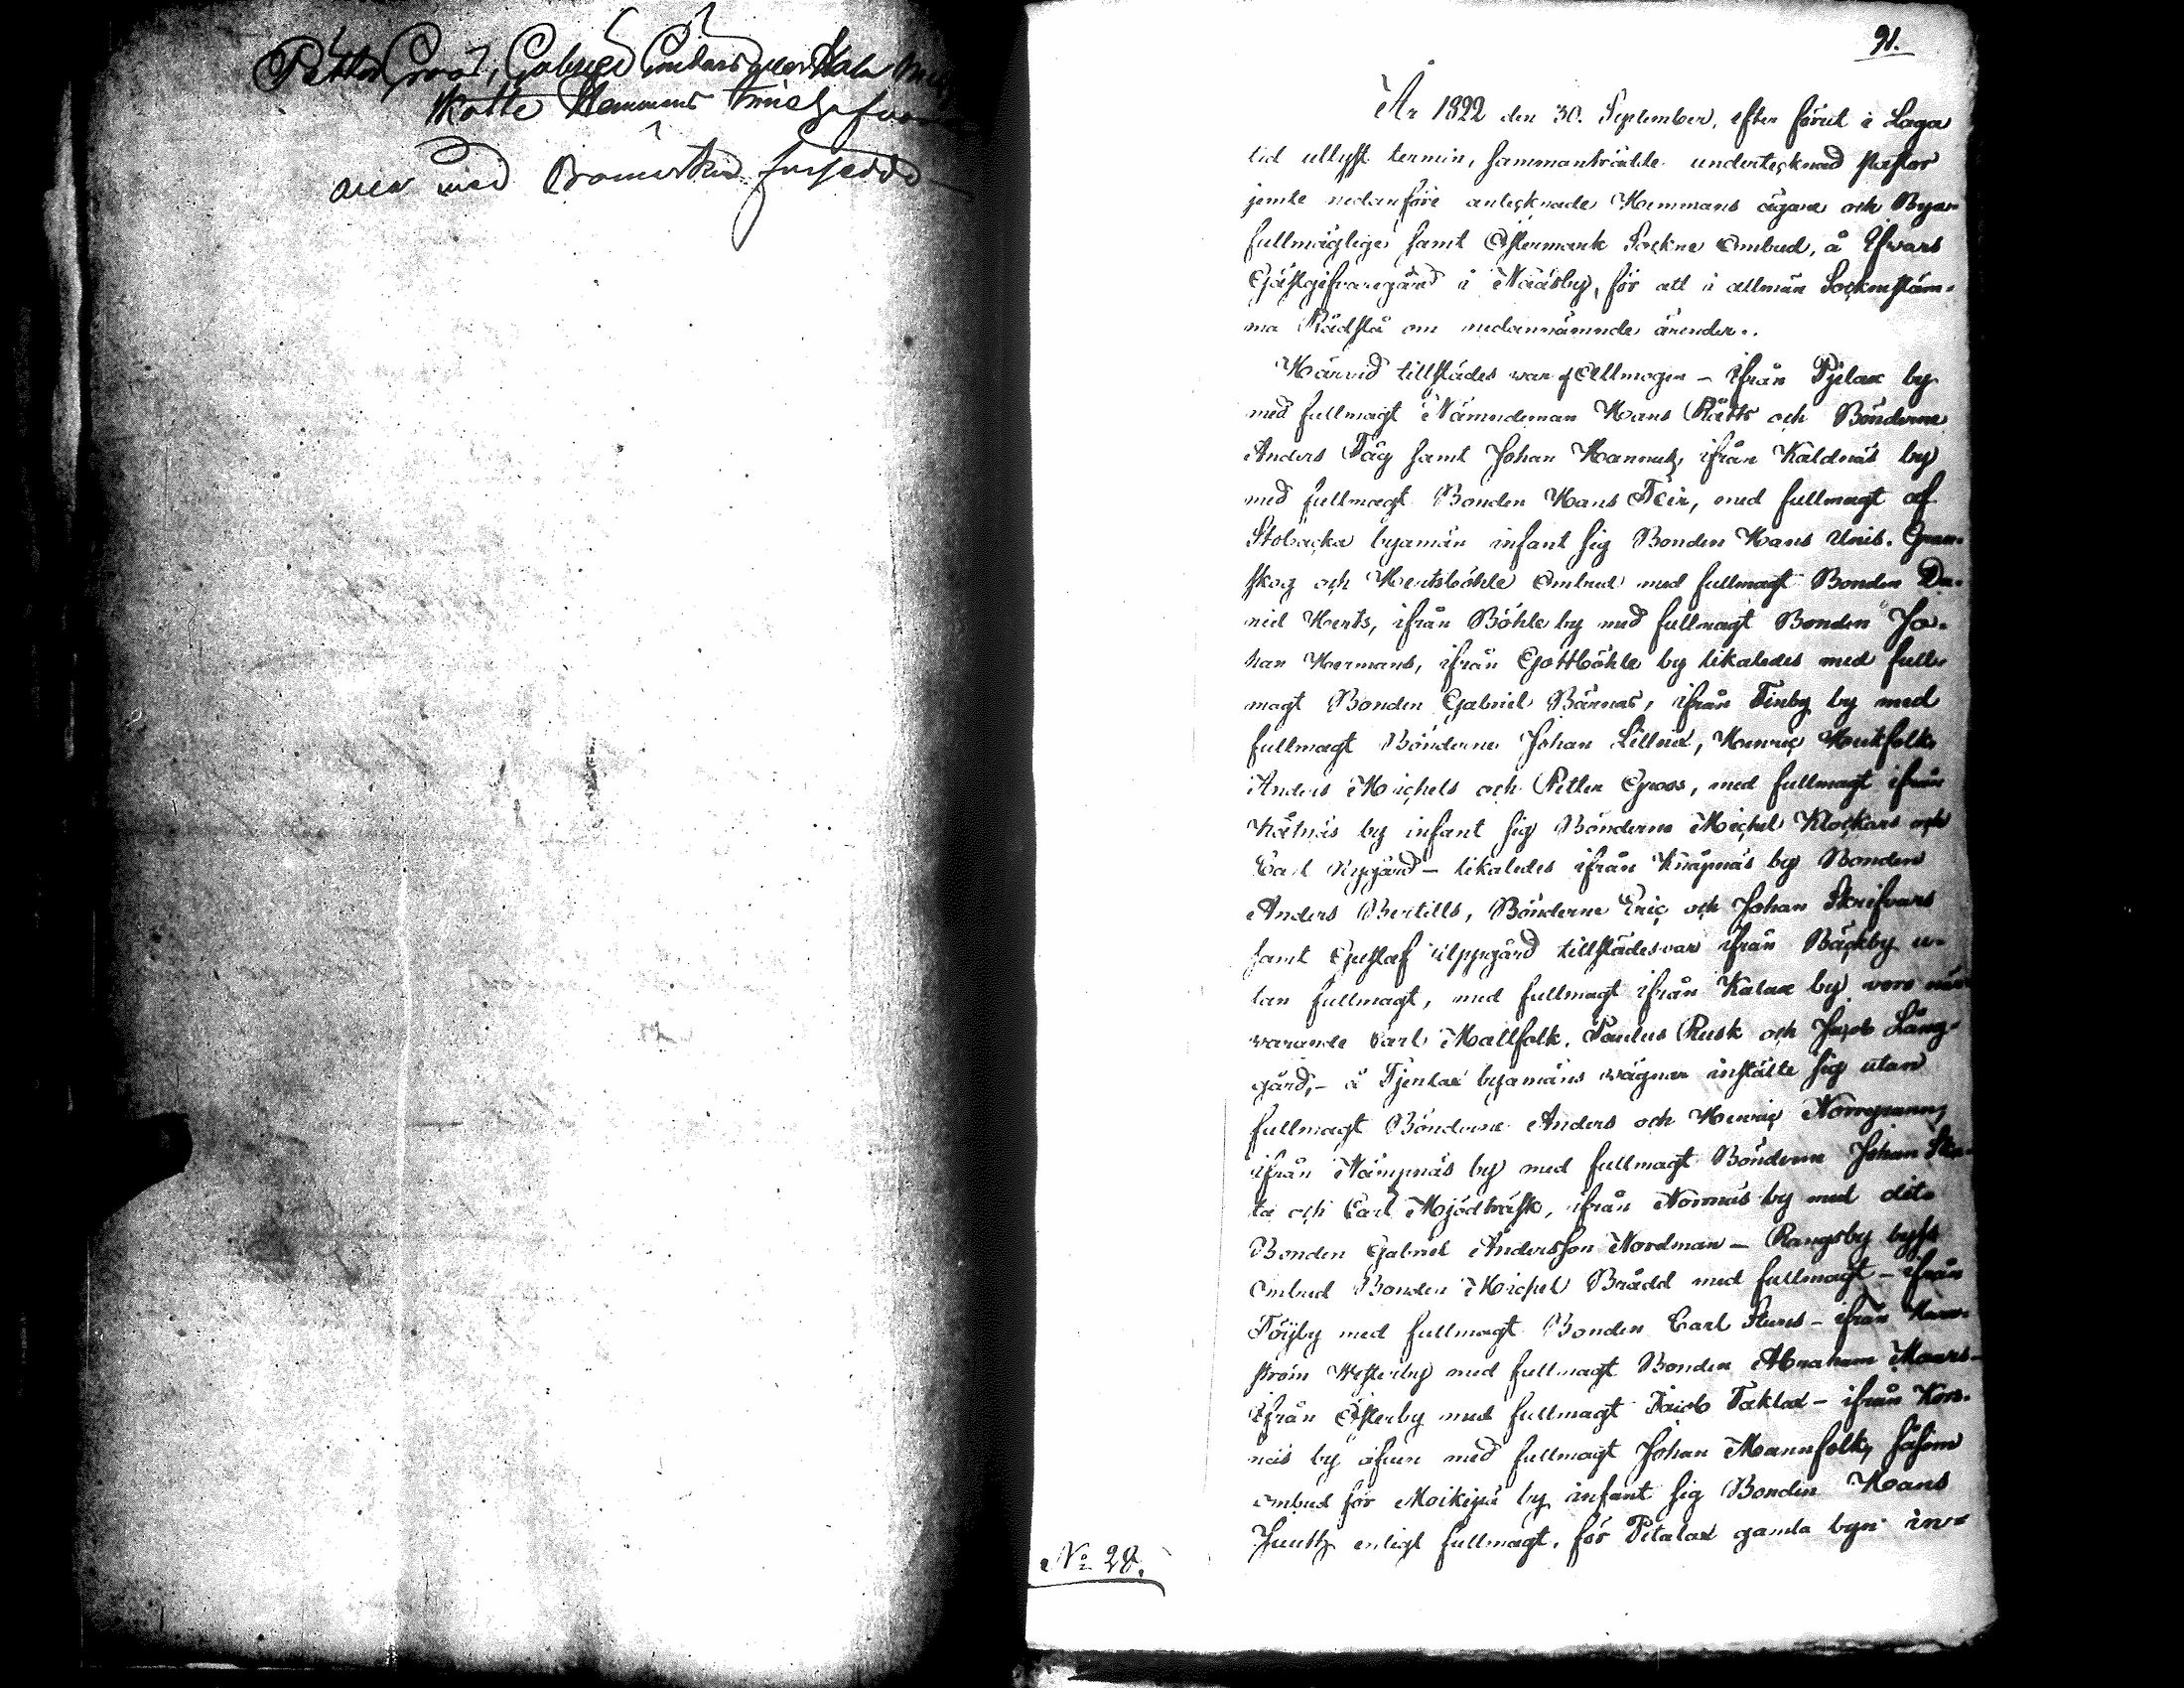 Petter Groos, Gabriel
Skatte Hemmans
med Bomärken försedde
91.
År 1822 den 30. September, efter förut i Laga
tid utlyst termin, sammanträdde undertecknad Pastor
jemte nedanföre antecknade Hemmans ägare och Bya-
fullmägtige samt Östermark Sockne Ombud, å Efvars
Gästgifvaregård i Näsby, för att i allmän Sockenstäm-
ma Rådslå om nedannämnde ärender.
Härvid tillstädes war af Allmogen - ifrån Pjelax by
med fullmagt Nämndeman Hans Rätts och Bönderne
Anders Tåg samt Johan Hannus, ifrån Kaldnäs by
med fullmagt Bonden Hans Teir, med fullmagt af
Stobacka byamän infant sig Bonden Hans Unis. Gran-
skog och Hertsböhle Ombud med fullmagt Bonden Da-
niel Herts, ifrån Böhle by med fullmagt Bonden Jo-
han Hermans, ifrån Gottböhle by likaledes med full-
magt Bonden Gabriel Bärnas, ifrån Finby by med
fullmagt Bönderne Johan Lillnäs, Henric Hertfolk
Anders Michels och Petter Groos, med fullmagt ifrån
Kåtnäs by infant sig Bönderne Michel Klockars och
Carl Nygård - likaledes ifrån Knåpnäs by Bonden
Anders Bertills, Bönderne Eric och Johan Skrifvars
samt Gustaf Uppgård tillstädesvar ifrån Bäckby u-
tan fullmagt, med fullmagt ifrån Kalax by voro när-
varande Carl Mallfolk, Paulus Rusk och Jacob Lång-
gård, - å Tjerlax byamäns wägnar instälte sig utan
fullmagt Bönderne Anders och Henric Norrgrann,
ifrån Nämpnäs by med fullmagt Bönderne Johan Ska-
ta och Carl Mjödträsk, ifrån Norrnäs by med dito
Bonden Gabriel Andersson Nordman - Rangsby bys
ombud Bonden Michel Brådd med fullmagt - ifrån
Töyby med fullmagt Bonden Carl Stures - ifrån Harr-
ström Westerby med fullmagt Bonden Abraham Mours-
ifrån Österby med fullmagt Jacob Taklax - ifrån Kors-
näs by äfven med fullmagt Johan Mannfolk, såsom
ombud för Moikipä by infant sig Bonden Hans
Juuth enligt fullmagt, för Petalax gamla byn in-
No 28.